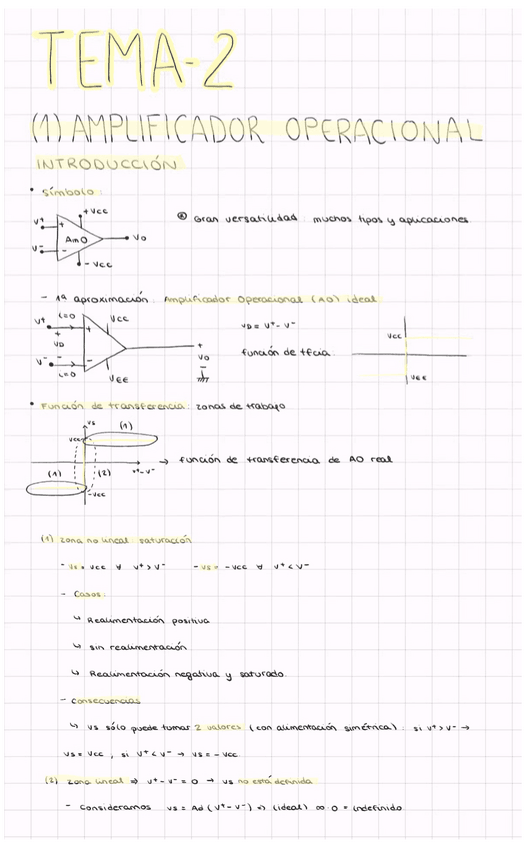 TEMA-2
(1) AMPLIFICADOR OPERACIONAL
INTRODUCCIÓN
• Símbolo:
+Vcc
V+
+
AmO
Vo
V-
-
-Vcc
⊛ Gran versatilidad: muchos tipos y aplicaciones.
- 1ª aproximación: Amplificador Operacional (AO) ideal
V+ i=0 + Vcc
+ VD -
V- i=0 - VEE
+ Vo -
VD = V+ - V-
función de tfcia.
Vcc
VEE
• Función de transferencia: zonas de trabajo
Vs (1)
Vcc
(1) (2) V+-V-
-Vcc
→ función de transferencia de AO real
(1) zona no lineal: saturación
- Vs = Vcc ∀ V+ > V- - Vs = -Vcc ∀ V+ < V-
- Casos:
↳ Realimentación positiva
↳ sin realimentación
↳ Realimentación negativa y saturado.
- Consecuencias
↳ Vs sólo puede tomar 2 valores (con alimentación simétrica): si V+ > V- →
Vs = Vcc, si V+ < V- → Vs = -Vcc
(2) zona lineal ⇒ V+ - V- = 0 → Vs no está definida
- Consideramos Vs = Ad (V+ - V-) ⇒ (ideal) ∞·0 = indefinido